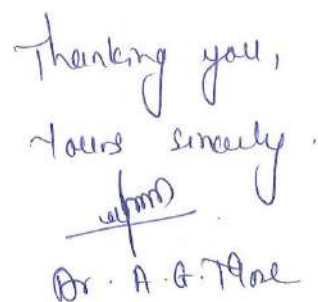 Thanking you,
Yours sincerely.
Dr. A. G. Thore